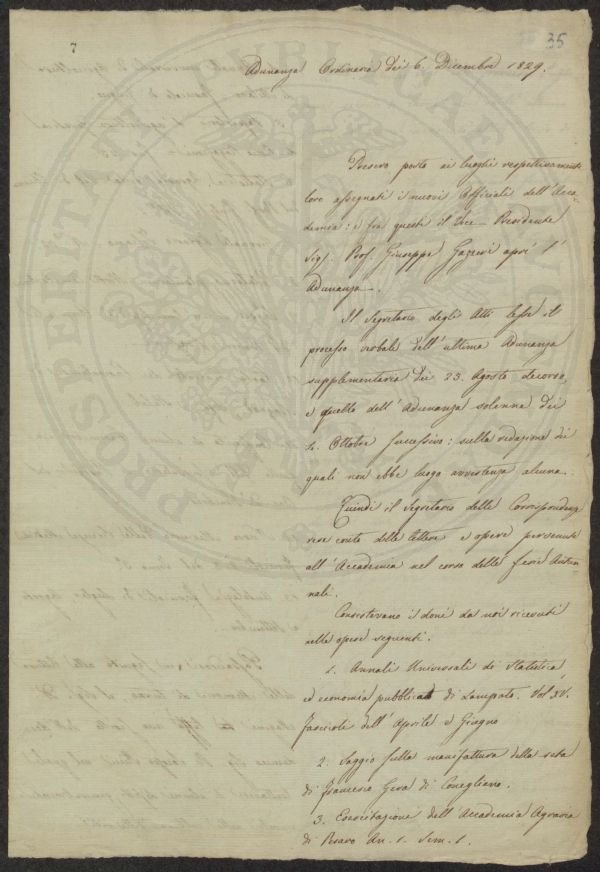 7
35
Adunanza Ordinaria dei 6. Dicembre 1829.
Presero posto ai luoghi respettivamente
loro assegnati i nuovi Officiali dell'Acca-
demia: e fra questi il Vice-Presidente
Sig. Prof. Giuseppe Gazzeri aprì l'
Adunanza.
Il Segretario degli Atti lesse il
processo verbale dell'ultima Adunanza
supplementaria dei 23. Agosto decorso,
e quello dell'Adunanza solenne dei
4. Ottobre successivo: sulla redazione dei
quali non ebbe luogo avvertenza alcuna.
Quindi il Segretario delle Corrispondenze
rese conto delle lettere e opere pervenute
all'Accademia nel corso delle ferie Autun-
nali.
Consistevano i doni da noi ricevuti
nelle opere seguenti.
1. Annali Universali di Statistica
ed economia pubblica di Lampato. Vol. XX.
fascicole dell'Aprile e Giugno
2. Saggio sulla manifattura della seta
di Francesco Gera di Conegliano.
3. Esercitazione dell'Accademia Agraria
di Pesaro An. 1. Sem. 1.
PROSPERITATI PUBLICAE